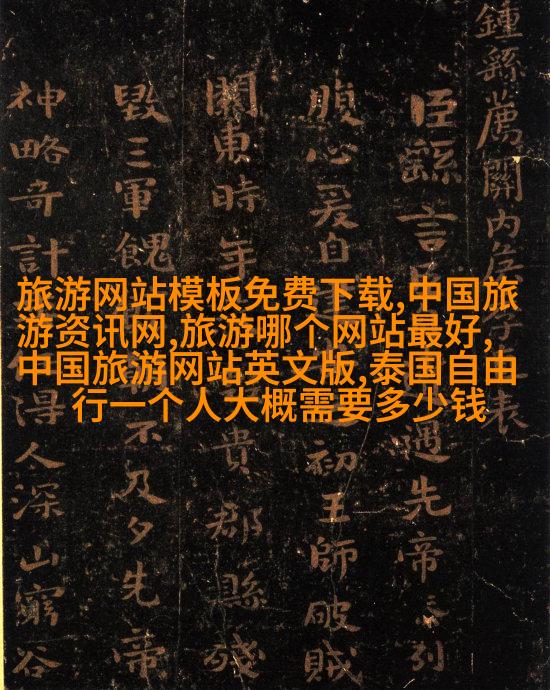 旅游网站模板免费下载,中国旅
游资讯网,旅游哪个网站最好,
中国旅游网站英文版,泰国自由
行一个人大概需要多少钱
鍾繇薦關内表
臣繇言臣遇先帝忝列
腹心爰自初王師破賊
關東時年貴郡縣殘
毀三軍餽不及夕先帝
神略奇計得人深山窮谷